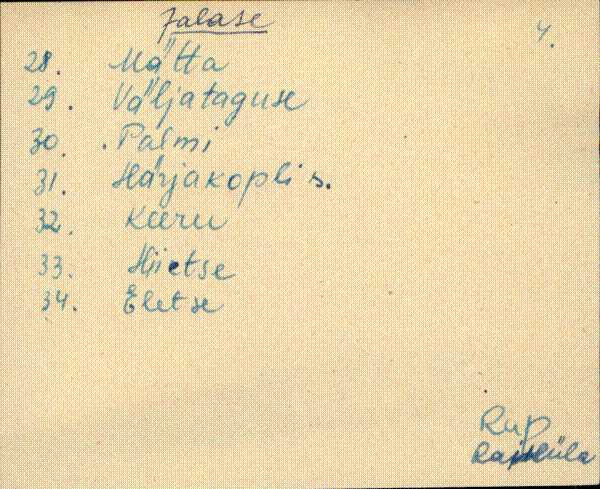 Jalase
4.
28. Mätta
29. Väljataguse
30. Palmi
31. Härjakopli s.
32. Keeru
33. Hiietse
34. Eletse
Rap